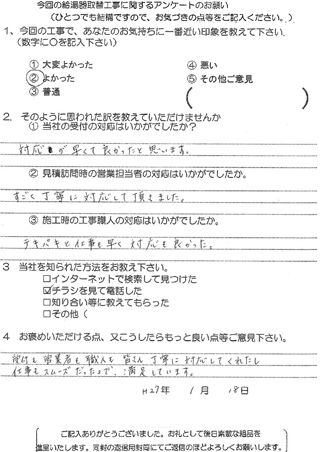 今回の給湯器取替工事に関するアンケートのお願い
(ひとつでも結構ですので、お気づきの点等をご記入ください。)
1、今回の工事で、あなたのお気持ちに一番近い印象を教えて下さい。
(数字に〇を記入下さい)
① 大変よかった
④ 悪い
② よかった
⑤ その他ご意見
③ 普通
(　　　)
2、そのように思われた訳を教えていただけませんか
① 当社の受付の対応はいかがでしたか?
対応が早くて良かったと思います。
② 見積訪問時の営業担当者の対応はいかがでしたか。
すごく丁寧に対応して頂きました。
③ 施工時の工事職人の対応はいかがでしたか。
テキパキと仕事も早く対応も良かった。
3　当社を知られた方法をお教え下さい。
□インターネットで検索して見つけた
☑チラシを見て電話した
□知り合い等に教えてもらった
□その他(
4　お褒めいただける点、又こうしたらもっと良い点等ご意見下さい。
受付も営業者も職人も皆さん丁寧に対応してくれたし
仕事もスムーズだったので、満足しています。
H27年　1月　18日
ご記入ありがとうございました。お礼として後日素敵な粗品を
進呈いたします。同封の返信用封筒にてご返信のほどよろしくお願いします。